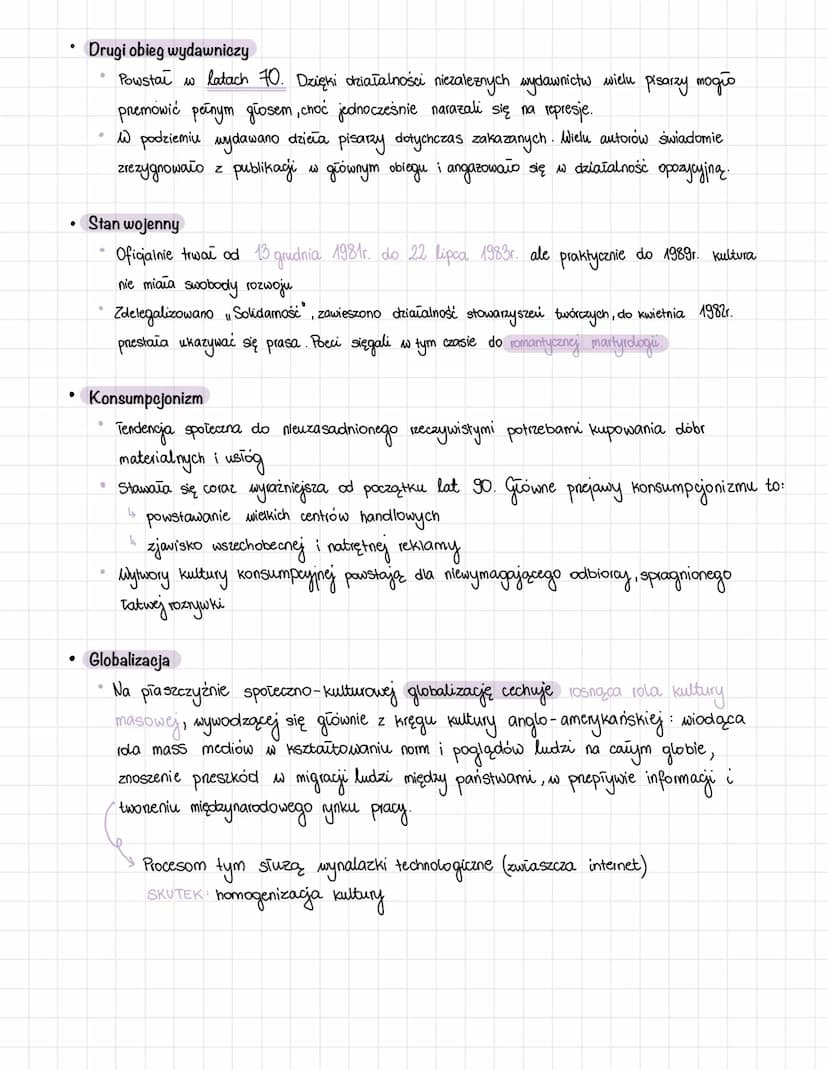 • Drugi obieg wydawniczy
• Powstał w latach 70. Dzięki działalności niezależnych wydawnictw wielu pisarzy mogło
przemówić pełnym głosem, choć jednocześnie narażali się na represje.
• W podziemiu wydawano dzieła pisarzy dotychczas zakazanych. Wielu autorów świadomie
zrezygnowało z publikacji w głównym obiegu i angażowało się w działalność opozycyjną.
• Stan wojenny
• Oficjalnie trwał od 13 grudnia 1981r. do 22 lipca 1983r. ale praktycznie do 1989r. kultura
nie miała swobody rozwoju
• Zdelegalizowano „Solidarność", zawieszono działalność stowarzyszeń twórczych, do kwietnia 1982r.
przestała ukazywać się prasa. Poeci sięgali w tym czasie do romantycznej martyrologii
• Konsumpcjonizm
• Tendencja społeczna do nieuzasadnionego rzeczywistymi potrzebami kupowania dóbr
materialnych i usług
• Stawała się coraz wyraźniejsza od początku lat 90. Główne przejawy konsumpcjonizmu to:
↳ powstawanie wielkich centrów handlowych
↳ zjawisko wszechobecnej i natrętnej reklamy
• Wytwory kultury konsumpcyjnej powstają dla niewymagającego odbiorcy, spragnionego
łatwej rozrywki
• Globalizacja
• Na płaszczyźnie społeczno-kulturowej globalizację cechuje rosnąca rola kultury
masowej, wywodzącej się głównie z kręgu kultury anglo-amerykańskiej : wiodąca
rola mass mediów w kształtowaniu norm i poglądów ludzi na całym globie,
znoszenie przeszkód w migracji ludzi między państwami, w przepływie informacji i
tworzeniu międzynarodowego rynku pracy.
Procesom tym służą wynalazki technologiczne (zwłaszcza internet)
SKUTEK: homogenizacja kultury